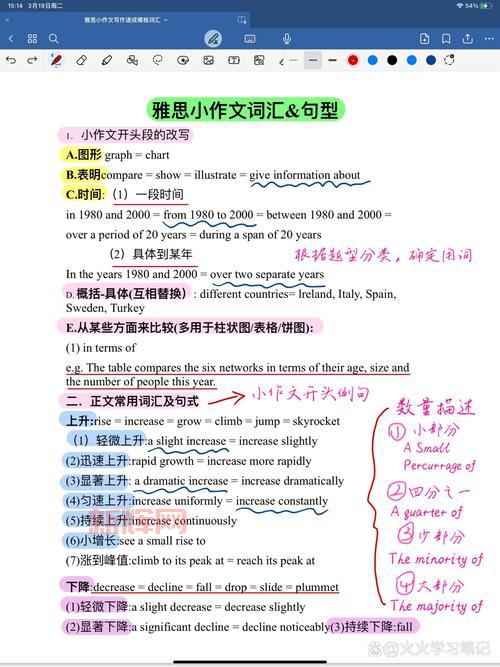 15:14 3月19日周二
54%
雅思小作文写作速成模板词汇
雅思小作文词汇&句型
1. 小作文开头段的改写
A.图形 graph = chart
B.表明compare = show = illustrate = give information about
C.时间:（1）一段时间
in 1980 and 2000 = from 1980 to 2000 = between 1980 and 2000 =
over a period of 20 years = during a span of 20 years
（2）具体到某年
根据题型分类，确定用词
In the years 1980 and 2000 = over two separate years
D. 概括-具体(互相替换）: different countries= lreland, Italy, Spain,
Sweden, Turkey
E.从某些方面来比较(多用于柱状图/表格/饼图):
(1) in terms of
e.g. The table compares the six networks in terms of their age, size and
the number of people this year.
二．正文常用词汇及句式
小作文开头例句
上升:rise = increase = grow = climb = jump = skyrocket
（1）轻微上升:a slight increase = increase slightly
(2)迅速上升:rapid growth = increase more rapidly
(3)显著上升: a dramatic increase = increase dramatically
(4)匀速上升:increase uniformly = increase constantly
(5)持续上升:increase continuously
(6)小增长:see a small rise to
(7)涨到峰值:climb to its peak at = reach its peak at
下降:decrease = decline = fall = drop = slide = plummet
(1)轻微下降:a slight decrease = decrease slightly
(2)显著下降:a significant decline = decline noticeably(3)持续下降:fall
数量描述
① 小部分
A Small
Percurrage of
② 四分之一
A quarter of
③ 少部分
The minority of
④ 大部分
The majority of
新辉网
@火火学习笔记